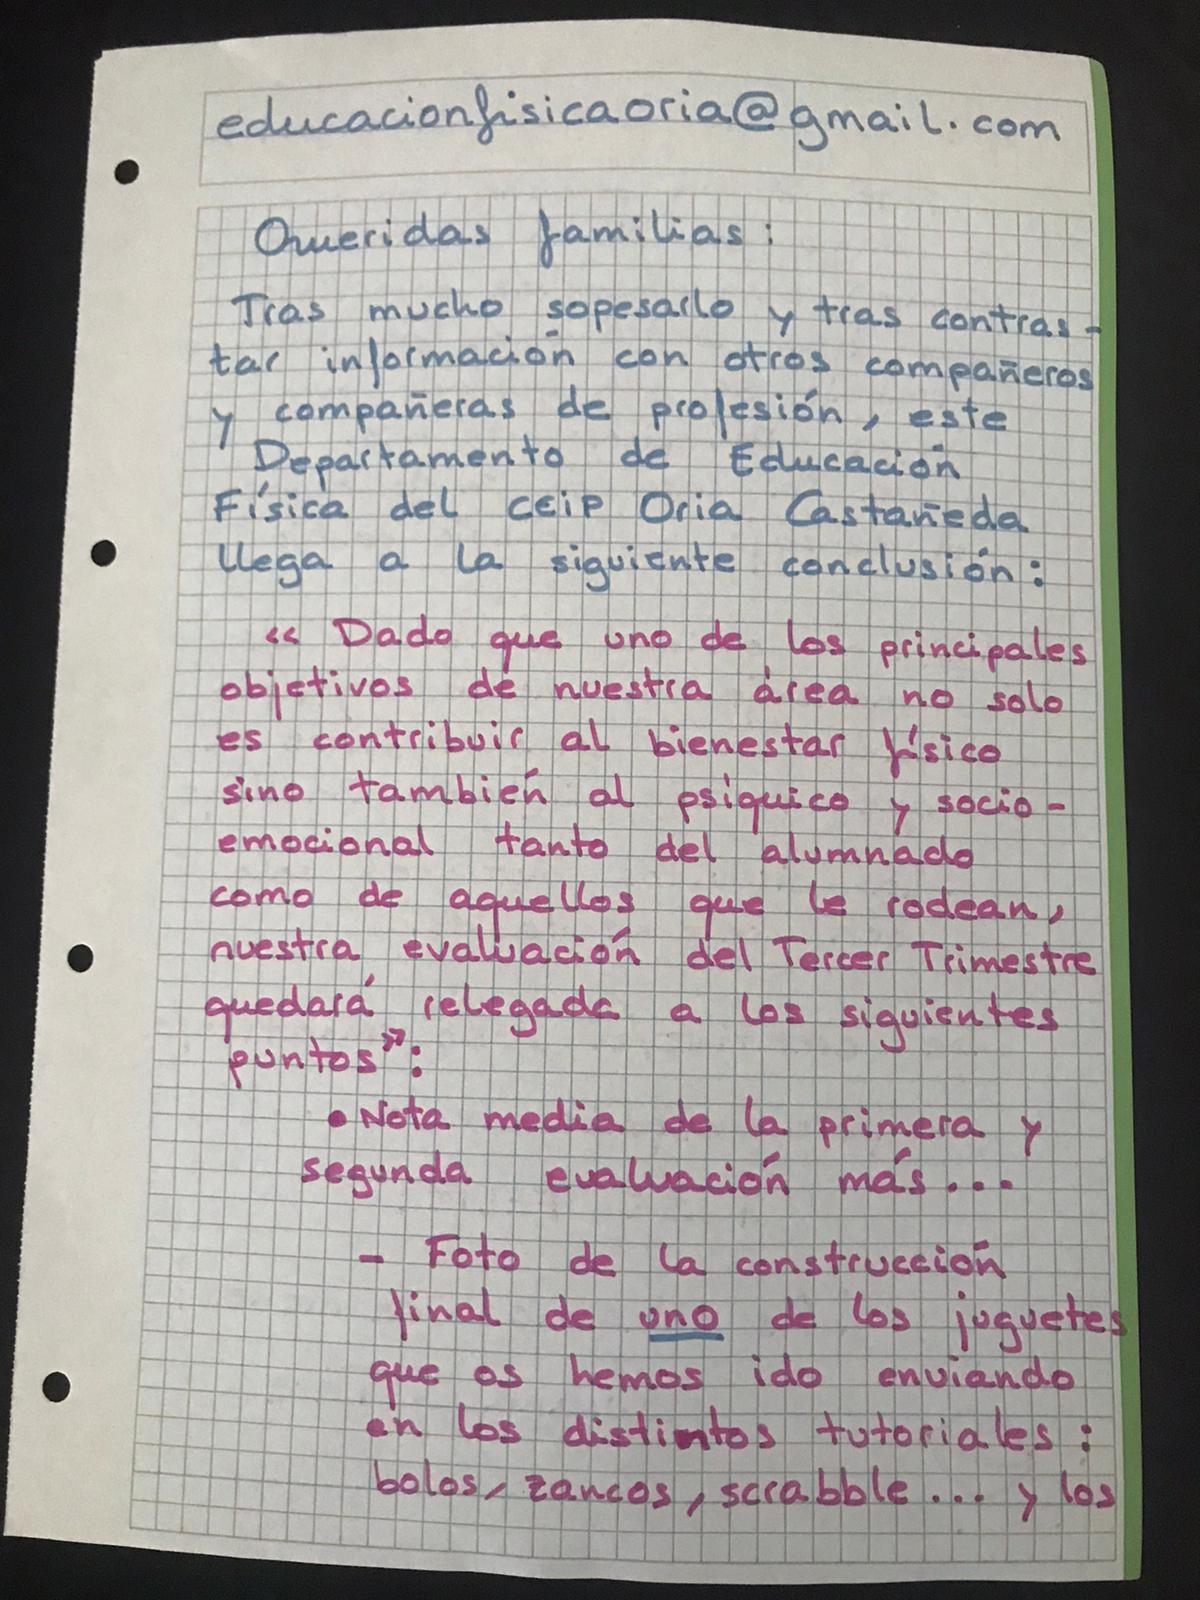 educacionfisicaoria@gmail.com
Queridas familias:
Tras mucho sopesarlo y tras contras-
tar información con otros compañeros
y compañeras de profesión, este
Departamento de Educación
Física del CEIP Oria Castañeda
llega a la siguiente conclusión:
<< Dado que uno de los principales
objetivos de nuestra área no solo
es contribuir al bienestar físico
sino también al psíquico y socio-
emocional tanto del alumnado
como de aquellos que le rodean,
nuestra evaluación del Tercer Trimestre
quedará relegada a los siguientes
puntos”:
• Nota media de la primera y
segunda evaluación más...
- Foto de la construcción
final de uno de los juguetes
que os hemos ido enviando
en los distintos tutoriales:
bolos, zancos, scrabble... y los